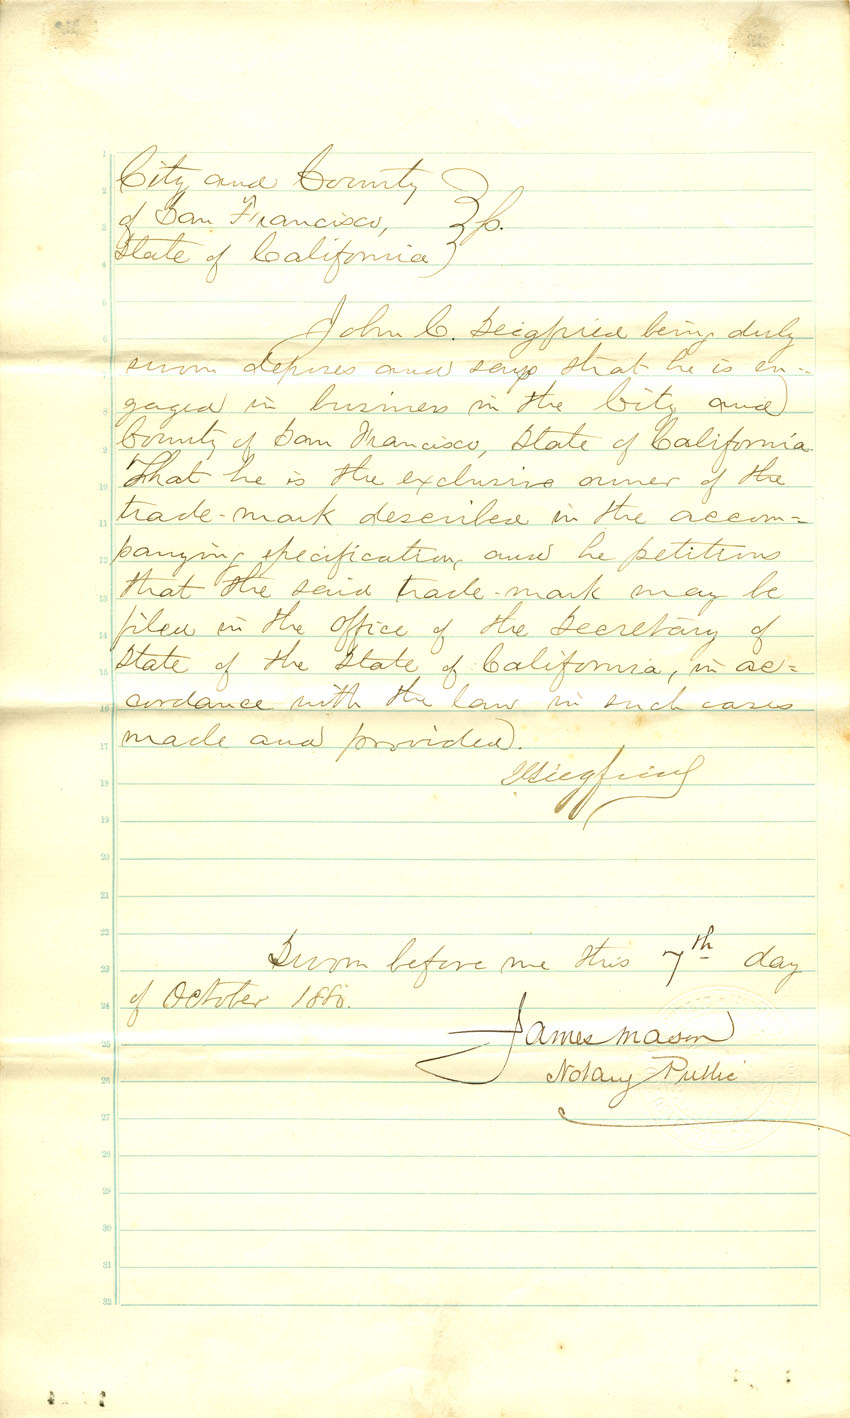 City and County
of San Francisco, } ss.
State of California
John C. Seigfried being duly
sworn deposes and says that he is en-
gaged in business in the City and
County of San Francisco, State of California.
That he is the exclusive owner of the
trade-mark described in the accom=
panying specification, and he petitions
that the said trade-mark may be
filed in the office of the Secretary of
State of the State of California, in ac=
cordance with the law in such cases
made and provided.
Siegfried
Sworn before me this 7th day
of October 1880.
James Mason
Notary Public